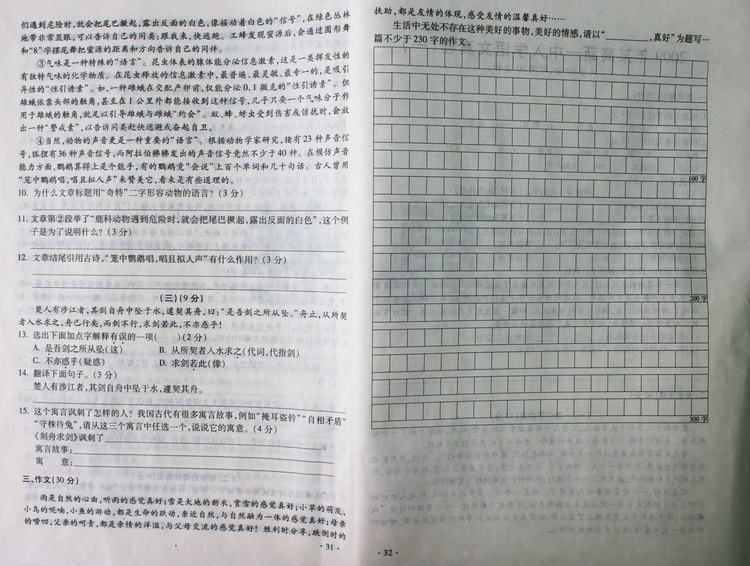 们遇到危险时,就会把尾巴撅起,露出反面的白色,像描动着白色的“信号”,在绿色丛林
地带非常显眼,可以告诉自己的同类:跟我来,快逃跑。工蜂发现蜜源后,会通过圆形舞
和“8”字摆尾舞把蜜源的距离和方向告诉自己的同伴。
③气味是一种特殊的“语言”。昆虫体表的腺体能分泌信息激素,这是一类挥发性的
有独特气味的化学物质。在昆虫释放的信息激素中,最普遍、最灵敏、最专一的,是吸引
异性的“性引诱素”。如,一种雌蛾在交配产卵前,仅能分泌0.1微克的“性引诱素”。但
雄蛾依靠头部的触角,甚至在1公里外都能接收到这种信号,几乎只要一个气味分子作
用于雄蛾的触角,就足以引导雄蛾与雌蛾“约会”。蚁、蜂、蚜虫受到伤害或惊扰时,会放
出一种“警戒素”,以告诉同类赶快逃避或奋起自卫。
④当然,动物的声音更是一种重要的“语言”。根据动物学家研究,猪有23种声音信
号,狐狸有36种声音信号,而阿拉伯狒狒发出的声音信号竟然不少于40种。在模仿声音
能力方面,鹦鹉算得上是个能手,有的鹦鹉竟“会说”上百个单词和几十句话。古人曾用
“笼中鹦鹉唱,唱且拟人声”来赞美它,看来是有些道理的。
10. 为什么文章标题用“奇特”二字形容动物的语言?(3分)
11. 文章第②段举了“鹿科动物遇到危险时,就会把尾巴撅起,露出反面的白色”,这个例
子是为了说明什么?(3分)
12. 文章结尾引用古诗,“笼中鹦鹉唱,唱且拟人声”有什么作用?(3分)
(三)(9分)
楚人有涉江者,其剑自舟中坠于水,遽契其舟,曰:“是吾剑之所从坠。”舟止,从所契
者入水求之,舟已行矣,而剑不行,求剑若此,不亦惑乎!
13. 选出下面加点字解释有误的一项( )(2分)
A. 是吾剑之所从坠(这) B. 从所契者入水求之(代词,代指剑)
C. 不亦惑乎(疑惑) D. 求剑若此(像)
14. 翻译下面句子。(3分)
楚人有涉江者,其剑自舟中坠于水,遽契其舟。
15. 这个寓言讽刺了怎样的人?我国古代有很多寓言故事,例如“掩耳盗铃”“自相矛盾”
“守株待兔”,请从这三个寓言中任选一个,说说它的寓意。(4分)
《刻舟求剑》讽刺了
寓言故事:
寓 意:
三、作文(30分)
雨是自然的心曲,听雨的感觉真好;雪是大地的新衣,赏雪的感觉真好;小草的萌发,
小鸟的呢喃,小鱼的游动,都是生命的跃动,亲近自然,与自然融为一体的感觉真好;母亲
的唠叨,父亲的呵责,都是亲情的洋溢,与父母交流的感觉真好!胜利时分享,跌倒时的
· 31 ·
扶助,都是友情的体现,感受友情的温馨真好……
生活中无处不存在这种美好的事物,美好的情感,请以“________,真好”为题写一
篇不少于230字的作文。
100字
200字
300字
· 32 ·